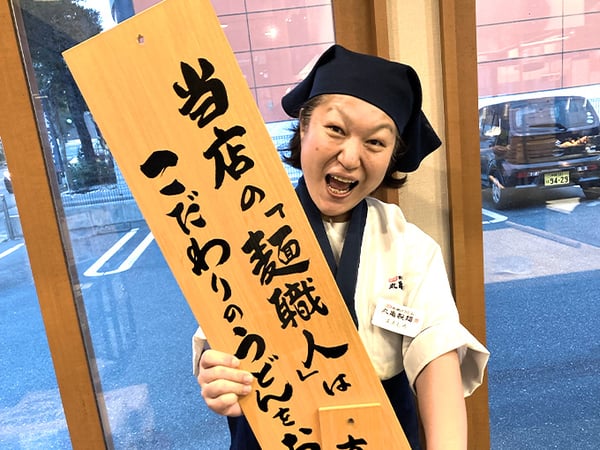 当店の「麺職人」は
こだわりのうどんをお
丸亀製麺